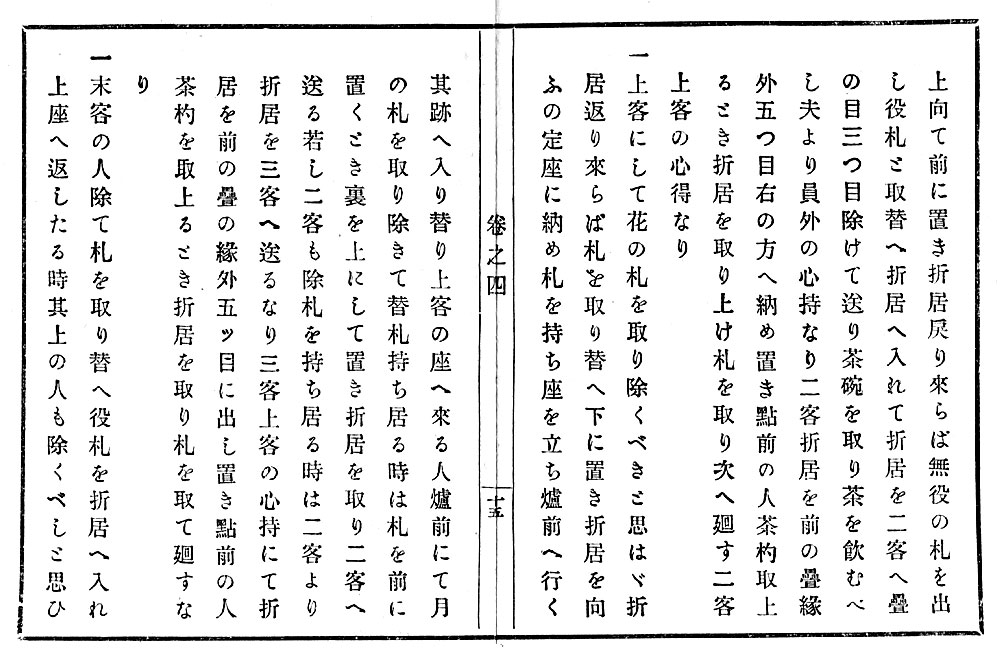 上向て前に置き折居戻り來らば無役の札を出
し役札と取替へ折居へ入れて折居を二客へ疊
の目三つ目除けて送り茶碗を取り茶を飮むべ
し夫より員外の心持なり二客折居を前の疊緣
外五つ目右の方へ納め置き點前の人茶杓取上
るとき折居を取り上け札を取り次へ廻す二客
上客の心得なり
一上客にして花の札を取り除くべきと思はヾ折
居返り來らば札を取り替へ下に置き折居を向
ふの定座に納め札を持ち座を立ち爐前へ行く
卷之四
十五
其跡へ入り替り上客の座へ來る人爐前にて月
の札を取り除きて替札持ち居る時は札を前に
置くとき裏を上にして置き折居を取り二客へ
送る若し二客も除札を持ち居る時は二客より
折居を三客へ送るなり三客上客の心持にて折
居を前の疊の緣外五ッ目に出し置き點前の人
茶杓を取上るとき折居を取り札を取て廻すな
り
一末客の人除て札を取り替へ役札を折居へ入れ
上座へ返したる時其上の人も除くべしと思ひ